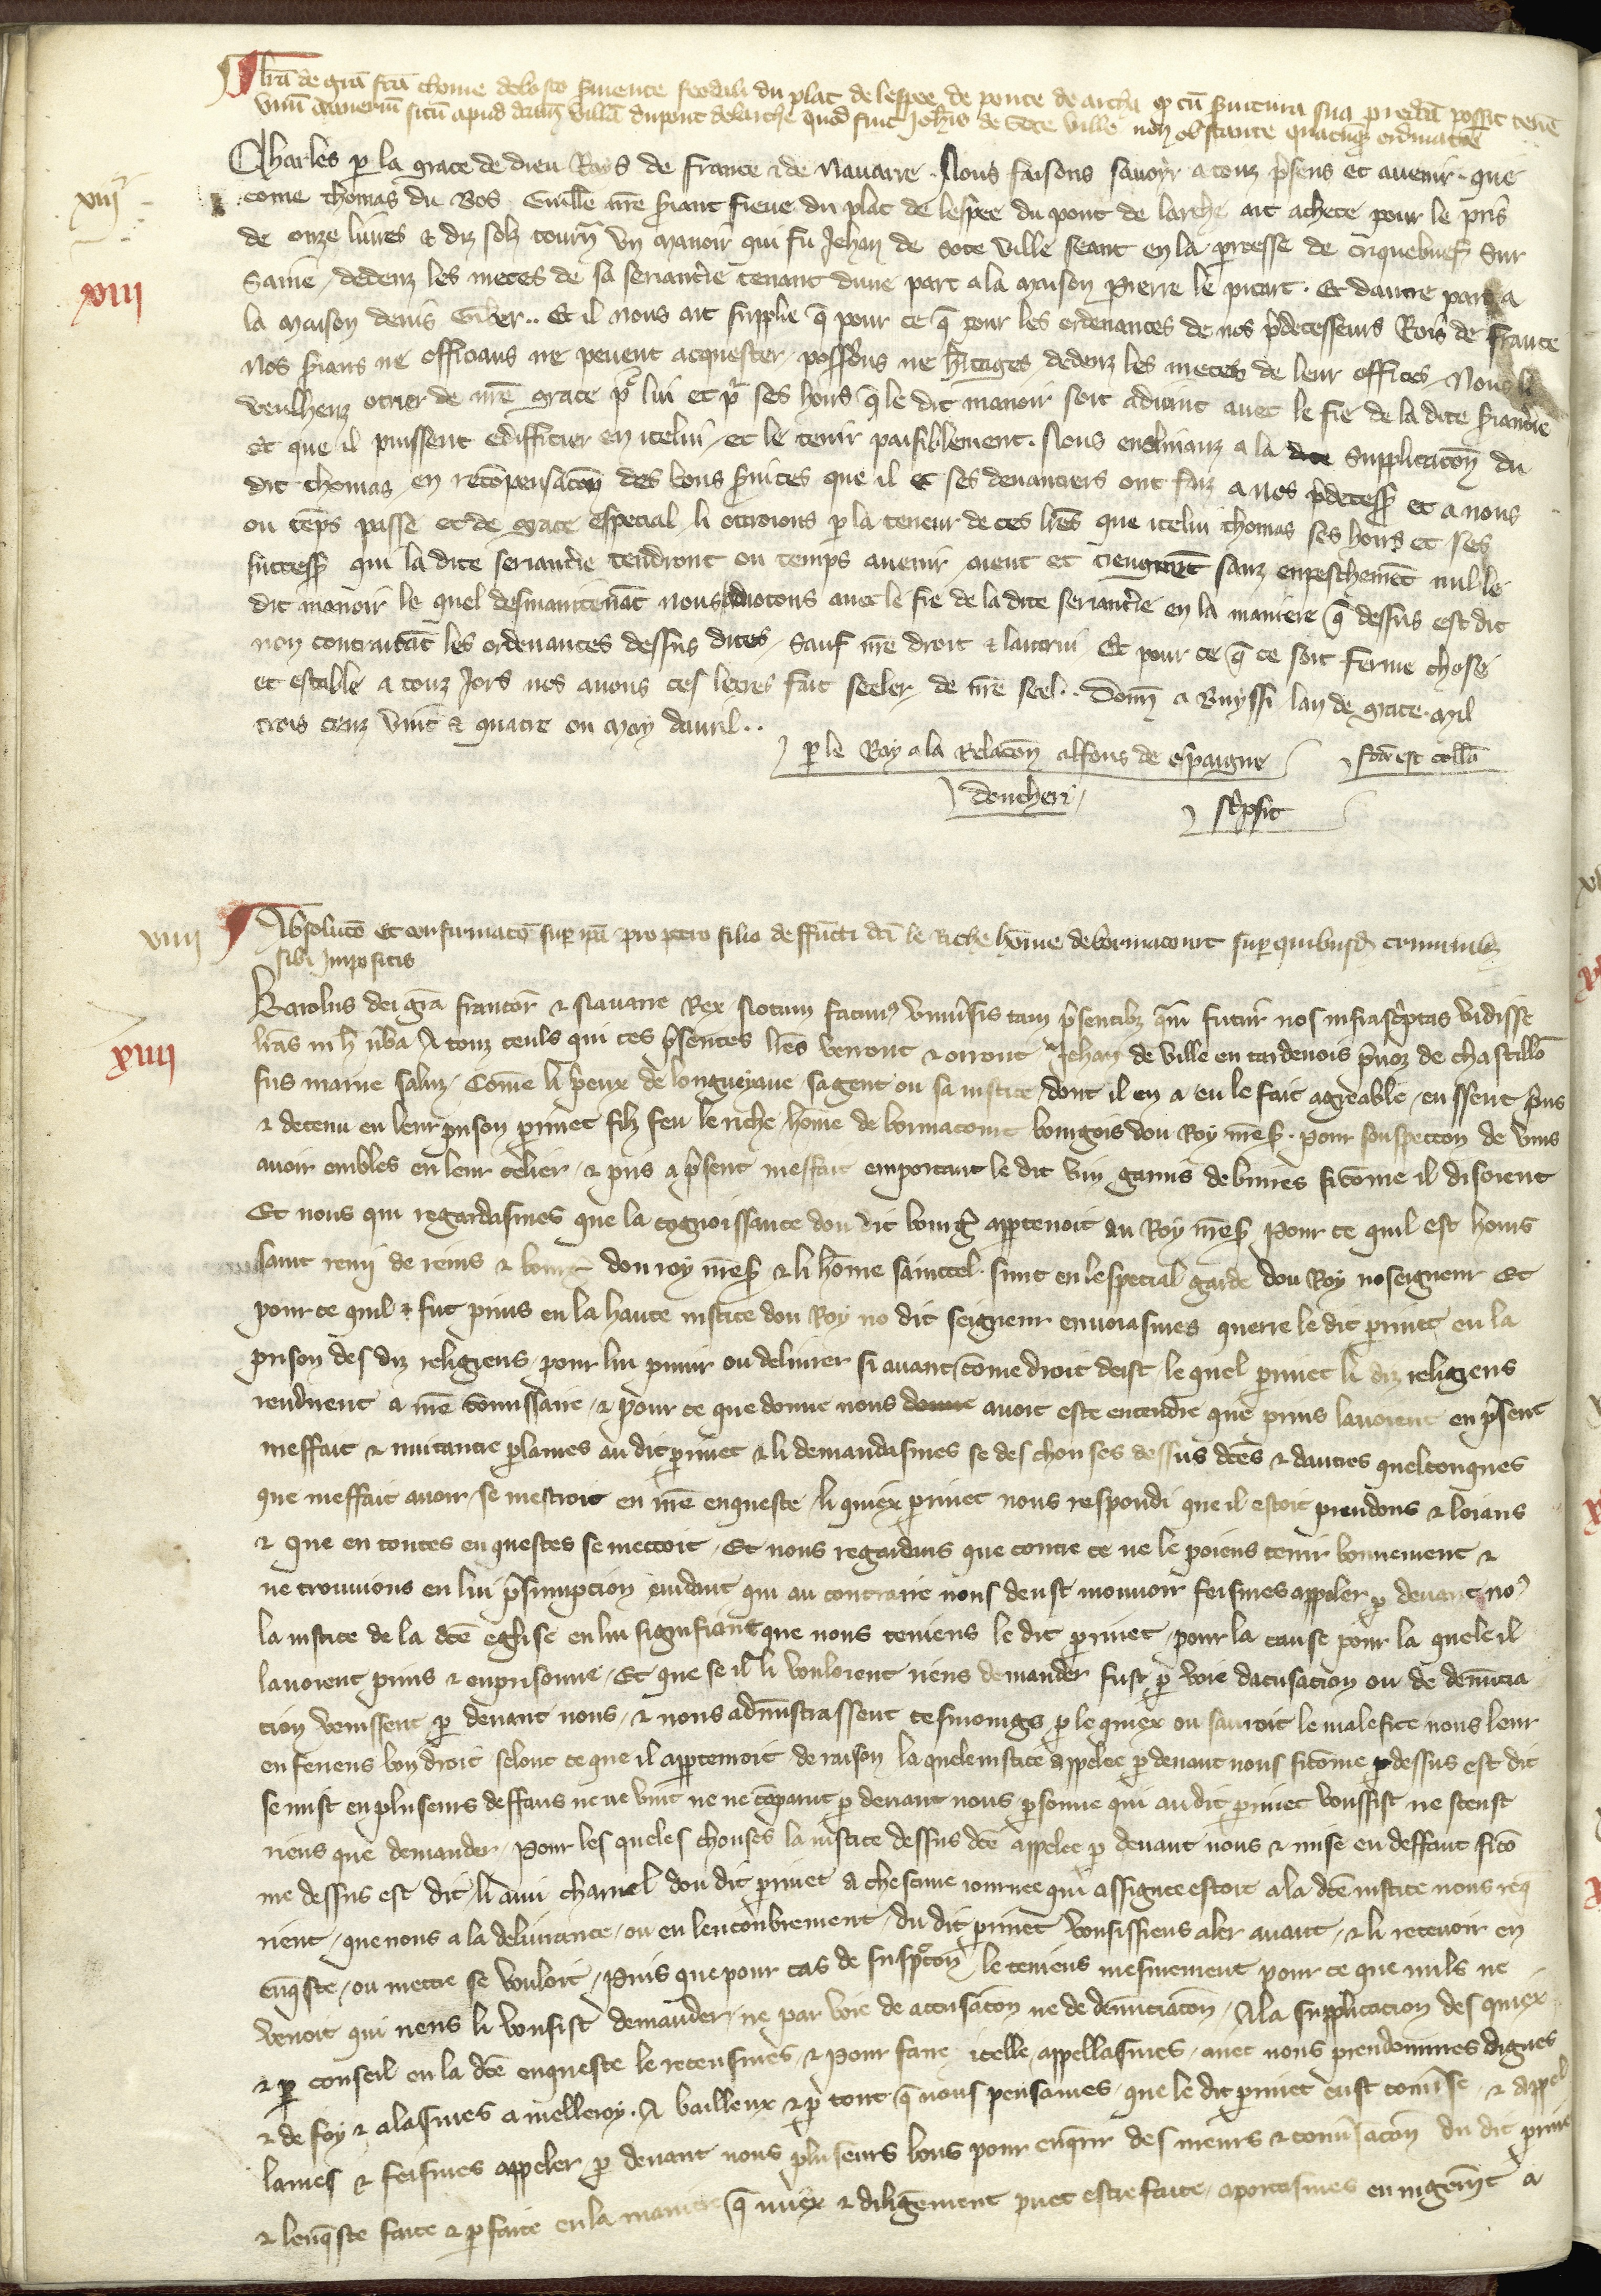 lr̃a de gr̃a fc̃a thome de bosco s̃viente feodali du plac de lespee de ponte de archa q̃ cũ s̃vitura sua p̃redc̃a possit tene
vnũ maneriũ sitũ apud dictam villã du pont de larche quod fuit Joh̃is de Sote ville non obstante quacũq; ordinacõe
Charles p la grace de dieu Roys de france & de Nauarre. Nous faisons sauoyr a touz p̃sens et auenir. que
xiij
come thomas du Bos Guille nr̃e s̃iant fieue du plac de lespee du pont de larche ait achete pour le pris
de onze liures & diz solz tourñ vn manoir qui fu Jehan de Sote ville seant en la p̃roesse de criquebuef sur
xiii
Saine, dedenz les metes de sa seriantie tenant dune part a la maison Pierre le picart. Et dautre part a
la maison denis Giber.. Et il nous ait supplie q̃ pour ce q̃ pour les ordenances de nos p̃decesseurs Rois de france
Nos s̃ians ne officians ne peuent acquester, possessions ne h̃itages dedenz les metes de leur offices, Nous li
veulhenz otrier de nr̃e grace pr̃ lui et pr̃ ses hoirs q̃ le dit manoir soit adioint auec le fie de la dite s̃iantie
Et que il puissent edifficier en icelui, et le tenir paisiblement. Nous enclinanz a la dite supplicacõn du
dit thomas en recõpensacõn des bons s̃uices que il et ses deuanciers ont faiz a nos p̃decess̃ et a nous
ou tẽps passe et de grace especial li otroions p la teneur de ces lr̃es que icelui thomas ses hoirs et ses
success̃ qui la dite seriantie tendront ou temps auenir, aient et tiengnent sanz enpeschemẽt nul le
dit manoir le quel desmaintenãt nous adioitons auec le fie de la dite seriantie en la maniere q̃ dessus est dit
non contraitãt les ordenances dessus dites, Sauf nr̃e droit & lautrui Et pour ce q̃ ce soit ferme chose
et estable a touz Jors nos auons ces letres fait seeler de nr̃e seel.. Doñ a Buyssi lan de grace mil
trois cenz vint & quatre ou moy dauril..
p le Roy a la relacõn alfons de espaigne
fc̃a est coll̃a
doucheri
sc̃psit
viiij
Absolucõ et confirmacõ sup ip̃a pro p̃tro filio deffũcti dc̃i le Riche hõme de bormacourt sup quibusd̃ criminib;
sibi impositis
Karolus dei gr̃a francor̃ & Nauarre Rex Notum facim9 vniũsis tam p̃sentib; q̃m futur̃ nos infrasc̃ptas vidisse
xiiii
lr̃as in h̃ ũba A touz ceuls qui ces p̃sentes lr̃es verront & orront Jehan de Ville en tardenois p̃uoz de chastillõ
sus marne saluz, Come li p̃eux de longueyaue, sagent ou sa iustice, dont il en a eu le fait agreable, eussent pris
& detenu en leur prison perinet filz feu le riche home de bormacourt bourgois dou Roy nr̃es̃. pour souspecion de vins
auoir emblés en leur celier, & pris a p̃sent meffait emportant le dit vin garnis de buires si cõme il disoient
Et nous qui regardasmes que la cognoissance dou dit bourg̃ apptenoit au Roy nr̃es̃ Pour ce quil est homs
saint remi de reins & bourg̃ dou roy nr̃es̃ & li hõme saintcel sunt en lespecial garde dou Roy no seigneur Et
pour ce quil & fut prins en la haute iustice dou Roy no dit seigneur enuoiasmes querre le dit p̃rinet en la
prison des diz religieus, pour lui punir ou deliurer si auant cõme droit deist, le quel p̃rinet li diz religieus
rendirent a nr̃e cõmissaire, & pour ce que donne nous auoit este entendre que prins lauoient en p̃sent
meffait & nuitantre plames au dit p̃rinet & li demandasmes se des chouses dessus dc̃es & dautres quelconques
que meffait auoir, se mestroit en nr̃e enqueste, li quiex p̃rinet nous respondi que il estoit preudons & loiaus
& Que en toutes enquestes se mettoit, Et nous regardans que contre ce ne le poiens tenir bonnement &
ne trouuions en lui p̃sumpcion euidant, qui au contraire nous deust mouuoir feismes appeler p deuant no9
la iustice de la dc̃e eglise en lui signifiant que nous teniens le dit p̃rinet, pour la cause pour la quele il
lauoient prins & enprisonne, Et que se il li vouloient riens demander fust p voie dacusacion ou de denũcia
cion venissent p deuant nous, & nous administrassent tesmoings p le quiex on sauroit le malefice nous leur
en feriens bon droit selonc ce que il apptenoit de raison la quele iustice appelee p deuant nous si cõme p dessus est dit
se mist en pluseurs deffaus ne ne vint ne ne cõparut p deuant nous psonne qui au dit p̃rinet vousist ne sceust
riens que demander, Pour les queles chouses la iustice dessus dc̃e appelee p deuant nous & mise en deffaut si cõ
me dessus est dit, li ami charnel dou dit p̃rinet a chescune iournee qui assignee estoit a la dc̃e iustice nous req̃
rient, que nous a la deliurance, ou en lencõbrement, du dit p̃rinet vousissiens aler auant, & li receuoir en
enq̃ste, ou mettre se vouloit, Puis que pour cas de suspc̃cõn le teniens mesmement pour ce que nuls ne
venoit qui riens li vousist demander, ne par voie de accusacõn ne de denũciacõn, A la supplicacion des quiex
& p conseil en la dc̃e enqueste le receusmes, & pour faire icelle appellasmes, auec nous preudommes dignes
& de foy & alasmes a melleroy. A bailleux & p tout q̃ nous pensames, que le dit p̃rinet eust conũse, & appel
lames & feismes appeler p deuant nous pluseurs bons pour enq̃rir des meurs & conũsacõn du dit p̃rinet
& lenq̃ste faite & p faite en la maniere q̃ miex & diligẽment puet estre faite, aportasmes en iugemẽt a